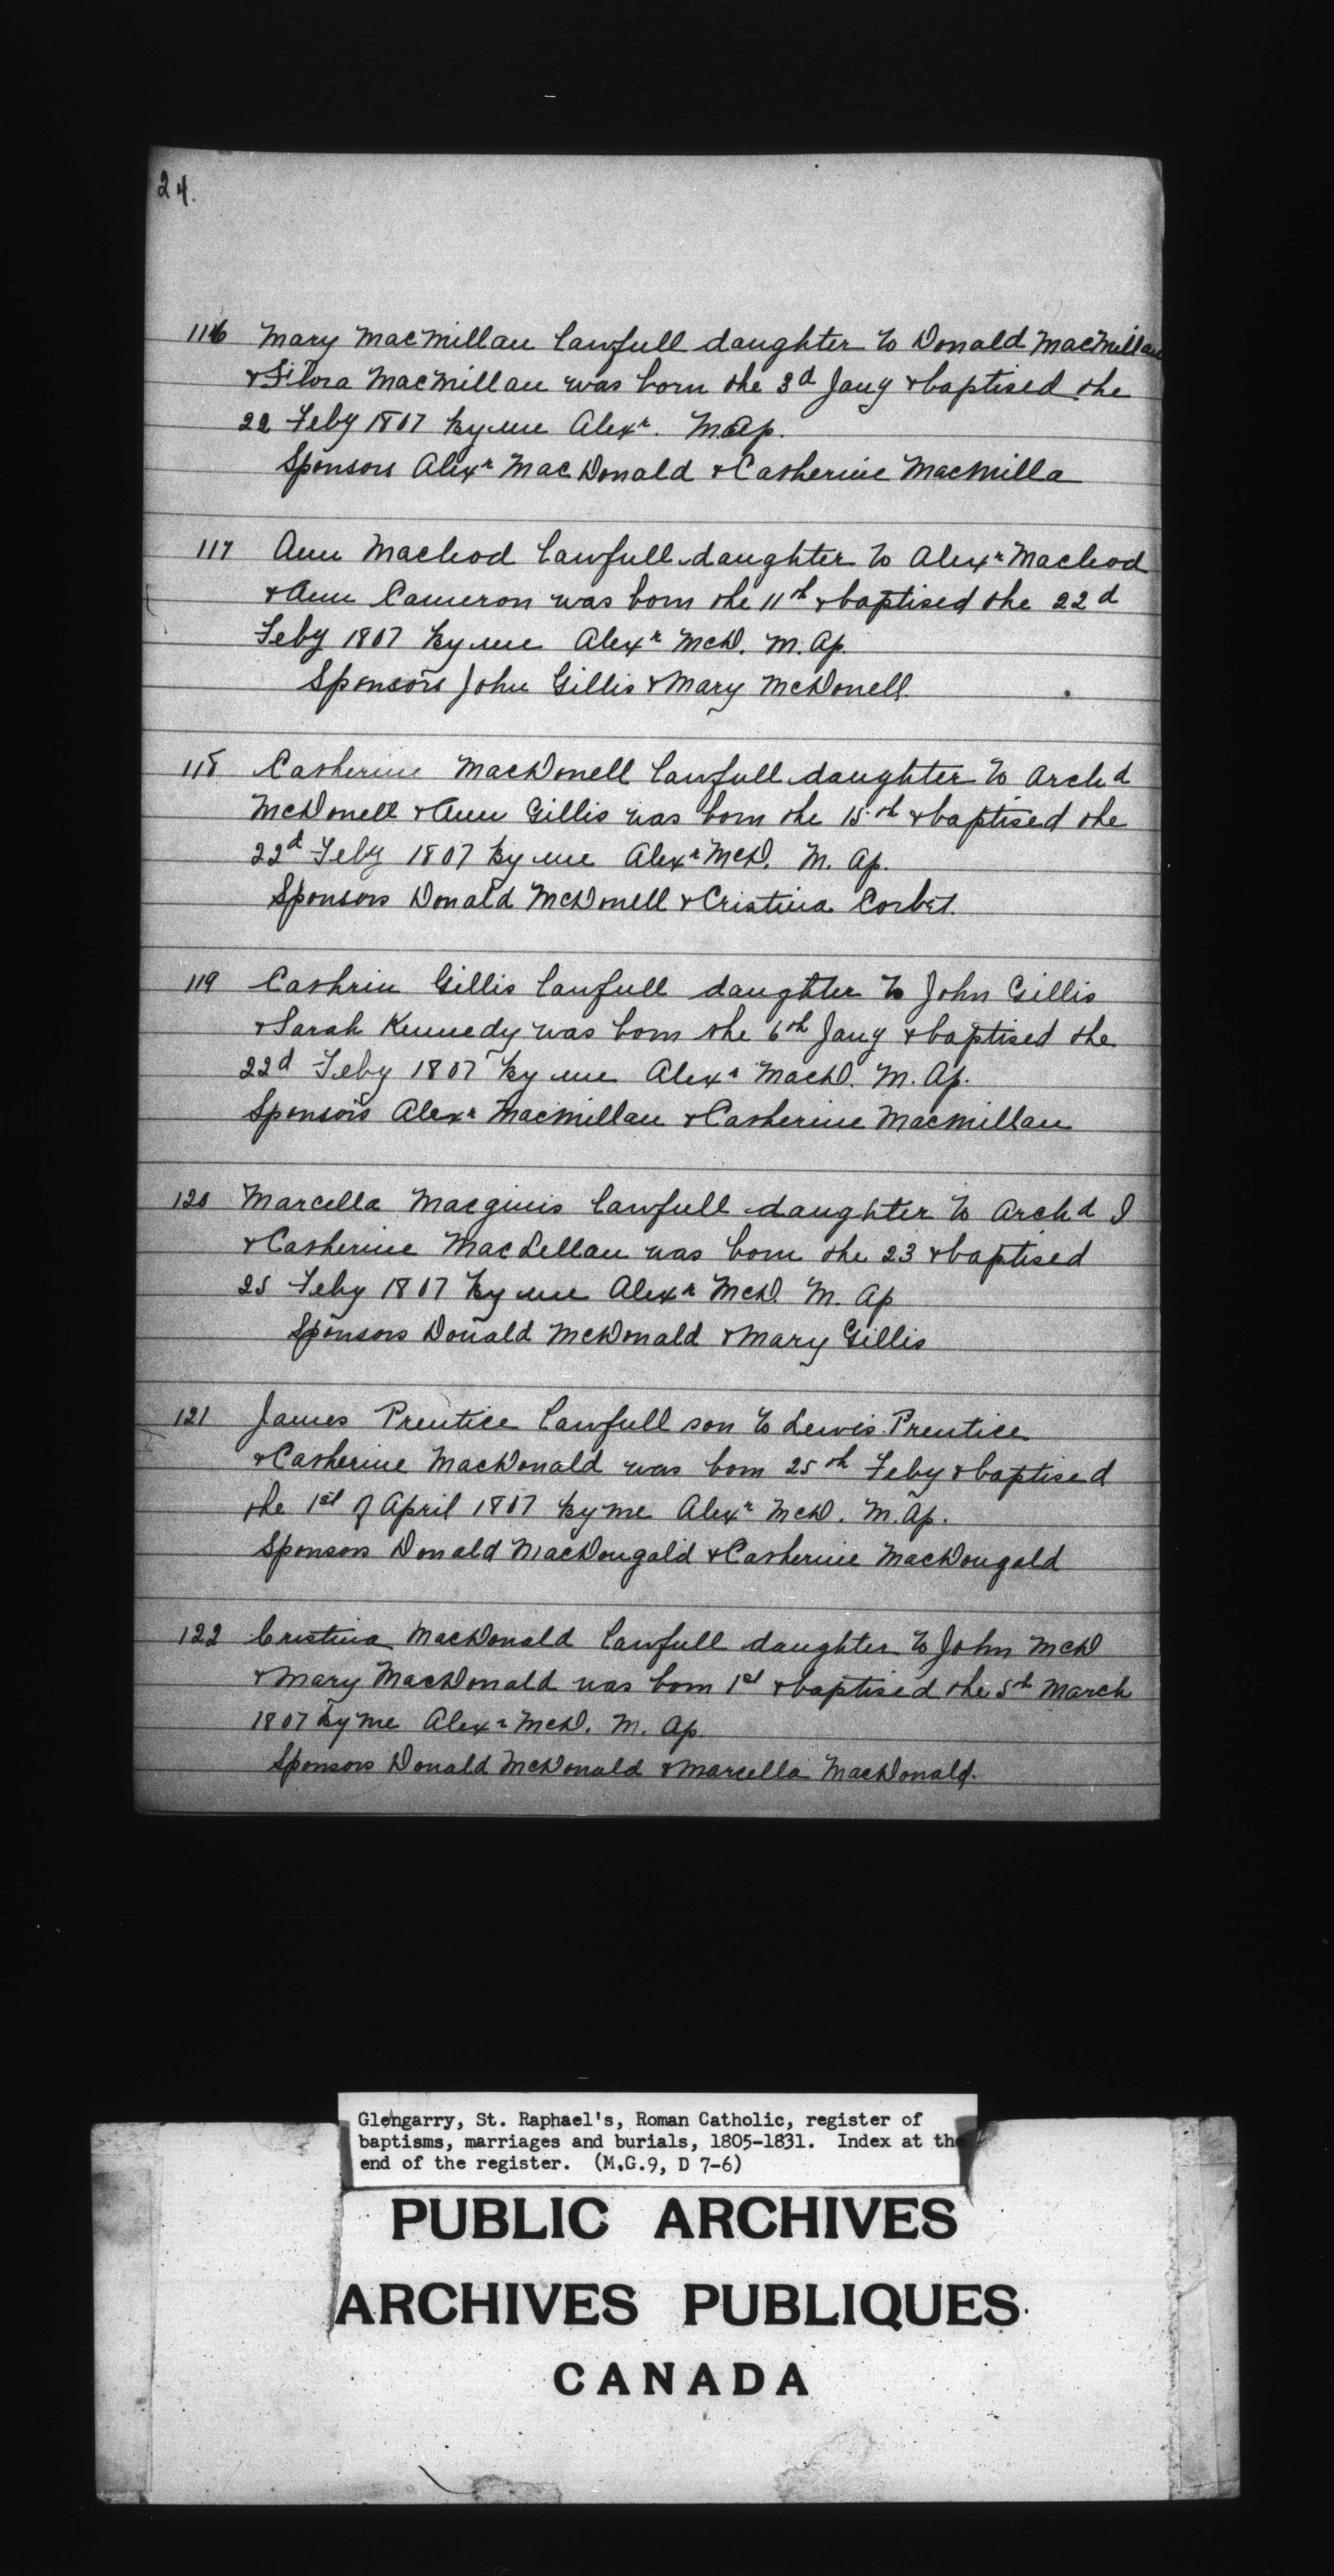 24.
116 Mary MacMillan lawfull daughter to Donald MacMillan
& Flora MacMillan was born the 3d Jany & baptised the
22 Feby 1807 by me Alexr. M. Ap.
Sponsors Alexr MacDonald & Catherine MacMilla
117 Ann Macleod lawfull daughter to Alexr Macleod
& Ann Cameron was born the 11th & baptised the 22d
Feby 1807 by me Alexr McD. M. Ap.
Sponsors John Gillis & Mary McDonell
118 Catherine MacDonell lawfull daughter to Archd
McDonell & Ann Gillis was born the 15th & baptised the
22d Feby 1807 by me Alexr McD. M. Ap.
Sponsors Donald McDonell & Cristina Corbet.
119 Cathrin Gillis lawfull daughter to John Gillis
& Sarah Kennedy was born the 6th Jany & baptised the
22d Feby 1807 by me Alexr MacD. M. Ap.
Sponsors Alexr Macmillan & Catherine Macmillan
120 Marcella Macginis lawfull daughter to Archd I
& Catherine MacLellan was born the 23 & baptised
25 Feby 1807 by me Alexr McD. M. Ap
Sponsors Donald McDonald & Mary Gillis
121 James Prentice lawfull son to Lewis Prentice
& Catherine MacDonald was born 25th Feby & baptised
the 1st of April 1807 by me Alexr McD. M. Ap.
Sponsors Donald MacDougald & Catherine MacDougald
122 Cristina MacDonald lawfull daughter to John McD
& Mary MacDonald was born 1st & baptised the 5th March
1807 by me Alexr McD. M. Ap.
Sponsors Donald McDonald & Marcella MacDonald.
Glengarry, St. Raphael's, Roman Catholic, register of
baptisms, marriages and burials, 1805-1831. Index at the
end of the register. (M.G.9, D 7-6)
PUBLIC ARCHIVES
ARCHIVES PUBLIQUES
CANADA